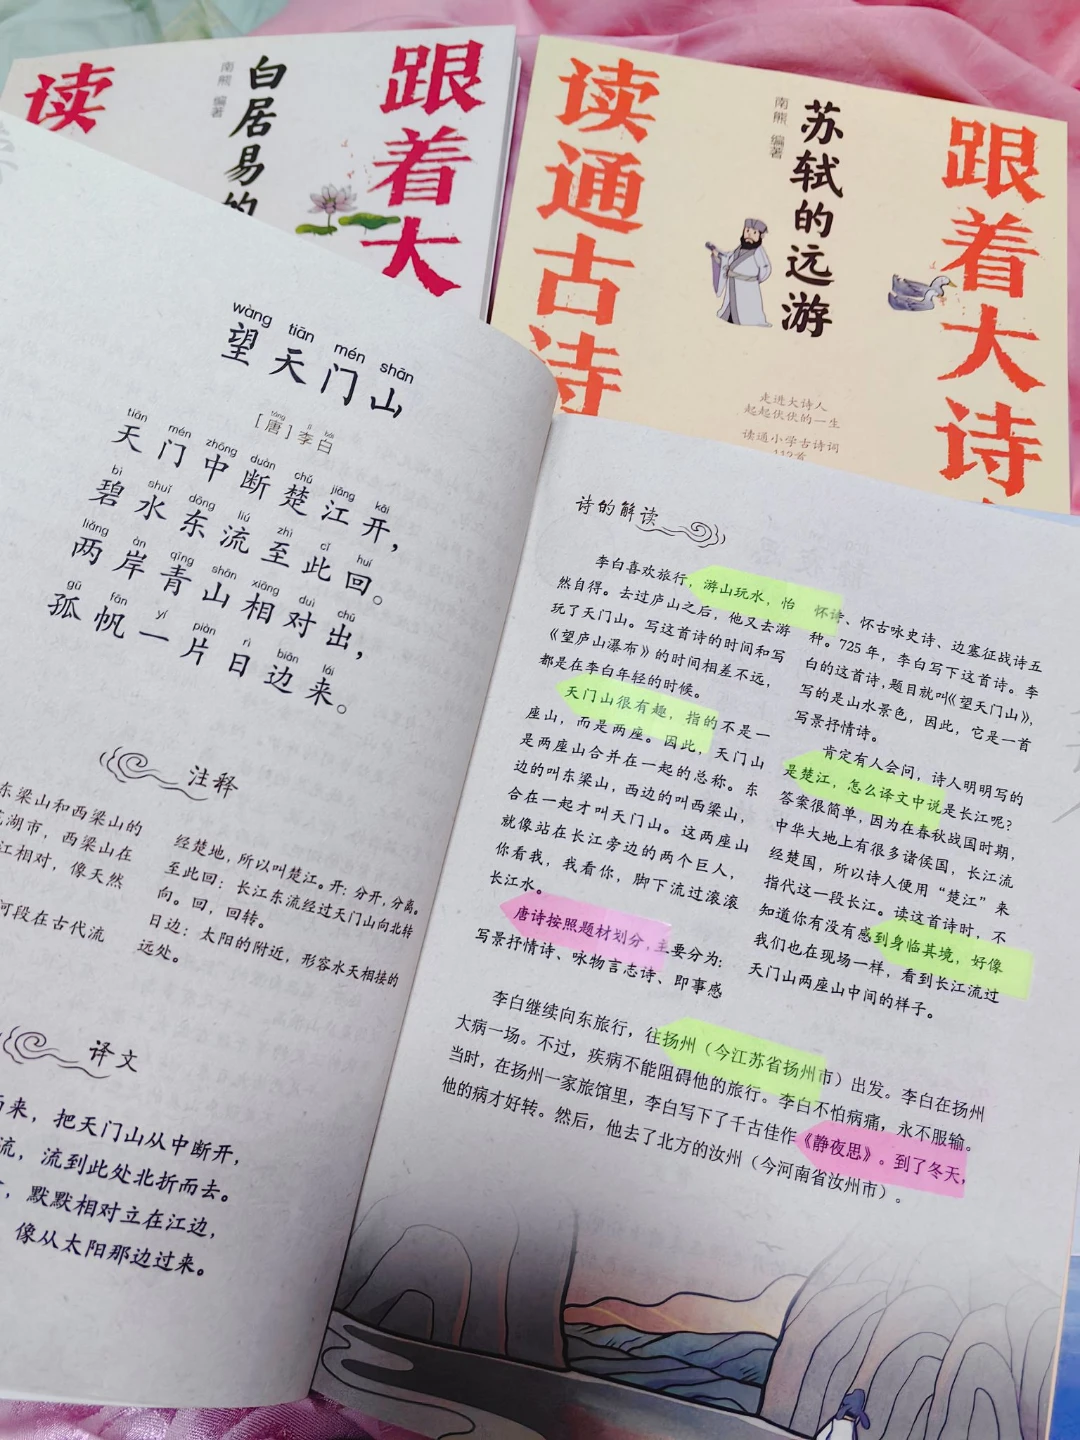 跟着大
白居易的
南熊 编著
读
跟着大诗
苏轼的远游
南熊 编著
读通古诗
走进大诗人
起起伏伏的一生
读通小学古诗词
112首
wàng tiān mén shān
望天门山
táng lǐ bái
[唐]李白
tiān mén zhōng duàn chǔ jiāng kāi
天门中断楚江开，
bì shuǐ dōng liú zhì cǐ huí
碧水东流至此回。
liǎng àn qīng shān xiāng duì chū
两岸青山相对出，
gū fān yí piàn rì biān lái
孤帆一片日边来。
注释
东梁山和西梁山的
湖市，西梁山在
江相对，像天然
河段在古代流
经楚地，所以叫楚江。开：分开，分离。
至此回：长江东流经过天门山向北转
向。回，回转。
日边：太阳的附近，形容水天相接的
远处。
译文
而来，把天门山从中断开，
流，流到此处北折而去。
，默默相对立在江边，
像从太阳那边过来。
诗的解读
李白喜欢旅行，游山玩水，怡
然自得。去过庐山之后，他又去游
玩了天门山。写这首诗的时间和写
《望庐山瀑布》的时间相差不远，
都是在李白年轻的时候。
天门山很有趣，指的不是一
座山，而是两座。因此，天门山
是两座山合并在一起的总称。东
边的叫东梁山，西边的叫西梁山，
合在一起才叫天门山。这两座山
就像站在长江旁边的两个巨人，
你看我，我看你，脚下流过滚滚
长江水。
唐诗按照题材划分，主要分为：
写景抒情诗、咏物言志诗、即事感
怀诗、怀古咏史诗、边塞征战诗五
种。725年，李白写下这首诗。李
白的这首诗，题目就叫《望天门山》，
写的是山水景色，因此，它是一首
写景抒情诗。
肯定有人会问，诗人明明写的
是楚江，怎么译文中说是长江呢？
答案很简单，因为在春秋战国时期，
中华大地上有很多诸侯国，长江流
经楚国，所以诗人便用“楚江”来
指代这一段长江。读这首诗时，不
知道你有没有感到身临其境，好像
我们也在现场一样，看到长江流过
天门山两座山中间的样子。
李白继续向东旅行，往扬州（今江苏省扬州市）出发。李白在扬州
大病一场。不过，疾病不能阻碍他的旅行。李白不怕病痛，永不服输。
当时，在扬州一家旅馆里，李白写下了千古佳作《静夜思》。到了冬天，
他的病才好转。然后，他去了北方的汝州（今河南省汝州市）。